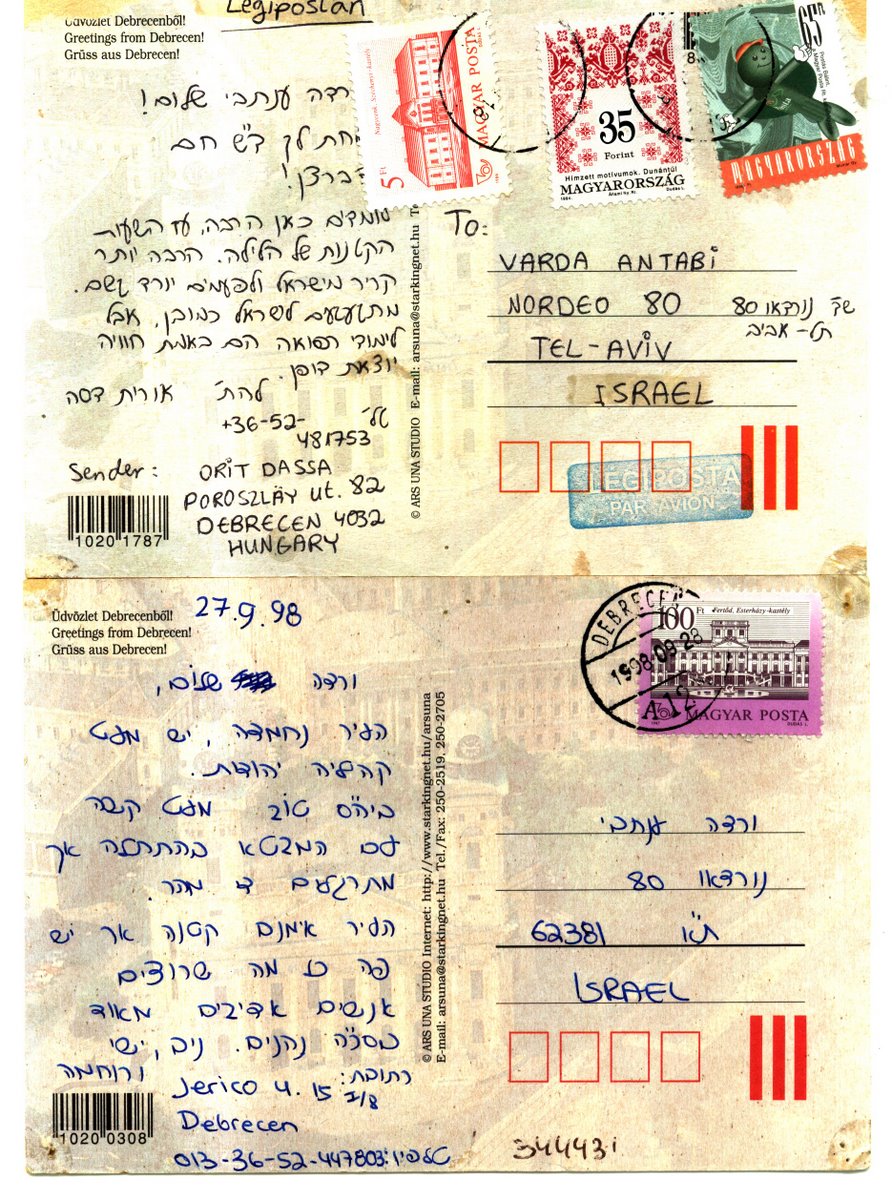 Légipostán
Üdvözlet Debrecenből!
Greetings from Debrecen!
Grüss aus Debrecen!
ורדה ענתבי שלום!
לך ד"ש חם
לומדים כאן הרבה, עד השעות
הקטנות של הלילה. הרבה יותר
קריר מישראל ולפעמים יורד גשם.
מתגעגעים לישראל כמובן. אבל
לימודי רפואה הם באמת חוויה
יוצאת דופן.
להת' אורית דסה
טל'
+36-52-
481753
Sender: ORIT DASSA
POROSZLÁY ut. 82
DEBRECEN 4032
HUNGARY
1020 1787
© ARS UNA STUDIO E-mail: arsuna@starkingnet.hu
5 Ft
MAGYAR POSTA
35
Forint
Hímzett motívumok. Dunántúl
MAGYARORSZÁG
65Ft
MAGYARORSZÁG
To:
VARDA ANTABI
NORDEO 80
שד' נורדאו 80
תל-אביב
TEL-AVIV
ISRAEL
LÉGIPOSTA
PAR AVION
Üdvözlet Debrecenből!
Greetings from Debrecen!
Grüss aus Debrecen!
27.9.98
ורדה שלום,
העיר נחמדה, יש מעט
קהילה יהודית.
ביה"ס טוב מעט קשה
עם המבטא בהתחלה אך
מתרגלים די מהר.
העיר אימנם קטנה אך יש
פה כל מה שרוצים
אנשים אדיבים מאוד
בסה"כ נהנים. ניב, ישי
ורוחמה
כתובת:
Jerico u. 15
7/8
Debrecen
טלפון: 013-36-52-447803
1020 0308
© ARS UNA STUDIO Internet: http://www.starkingnet.hu/arsuna
E-mail: arsuna@starkingnet.hu Tel./Fax: 250-2519, 250-2705
DEBRECEN
1998-09-28
A 12
100 Ft
Fertőd, Esterházy-kastély
MAGYAR POSTA
DUDÁS L.
ורדה ענתבי
נורדאו 80
ת"א 62381
ISRAEL
34443i